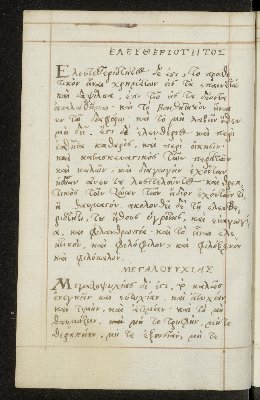 ΕΛΕΥΘΕΡΙΟΤΗΤΟΣ
Ἐλευθεριότητος δέ ἐστι τὸ προε
τικὸν εἶναι χρημάτων εἰς τὰ ἐπαινετὰ
καὶ δαψιλῆ ἐπὶ τῷ εἰς τὰ δέοντα
ἀναλωθῆναι· καὶ τὸ βοηθητικὸν εἶναι
ἐν τῷ διαφόρῳ· καὶ τὸ μὴ λαβεῖν ὅθεν
μὴ δεῖ. ἔστι δὲ ὁ ἐλευθέριος καὶ περὶ
ἐσθῆτα καθάριος, καὶ περὶ οἴκησιν·
καὶ κατασκευαστικὸς τῶν περιττῶν
καὶ καλῶν· καὶ διαγωγὴν ἐχόντων
ἡδεῖαν ἄνευ τοῦ λυσιτελοῦντος· καὶ θρεπ
τικὸς τῶν ζῴων τῶν ἴδιον ἐχόντων τι
ἢ θαυμαστόν. ἀκολουθεῖ δὲ τῇ ἐλευθε
ριότητι, τοῦ ἤθους ὑγρότης, καὶ εὐαγωγί
α, καὶ φιλανθρωπία· καὶ τὸ εἶναι ἐλε
ητικὸν, καὶ φιλόφιλον· καὶ φιλόξενον
καὶ φιλόκαλον.
ΜΕΓΑΛΟΨΥΧΙΑΣ
Μεγαλοψυχίας δέ ἐστι, τὸ καλῶς
ἐνεγκεῖν καὶ εὐτυχίαν, καὶ ἀτυχίαν
καὶ τιμὴν, καὶ ἀτιμίαν· καὶ τὸ μὴ
θαυμάζειν. μήτε τρυφὴν, μήτε
θεραπείαν, μήτε ἐξουσίαν, μήτε